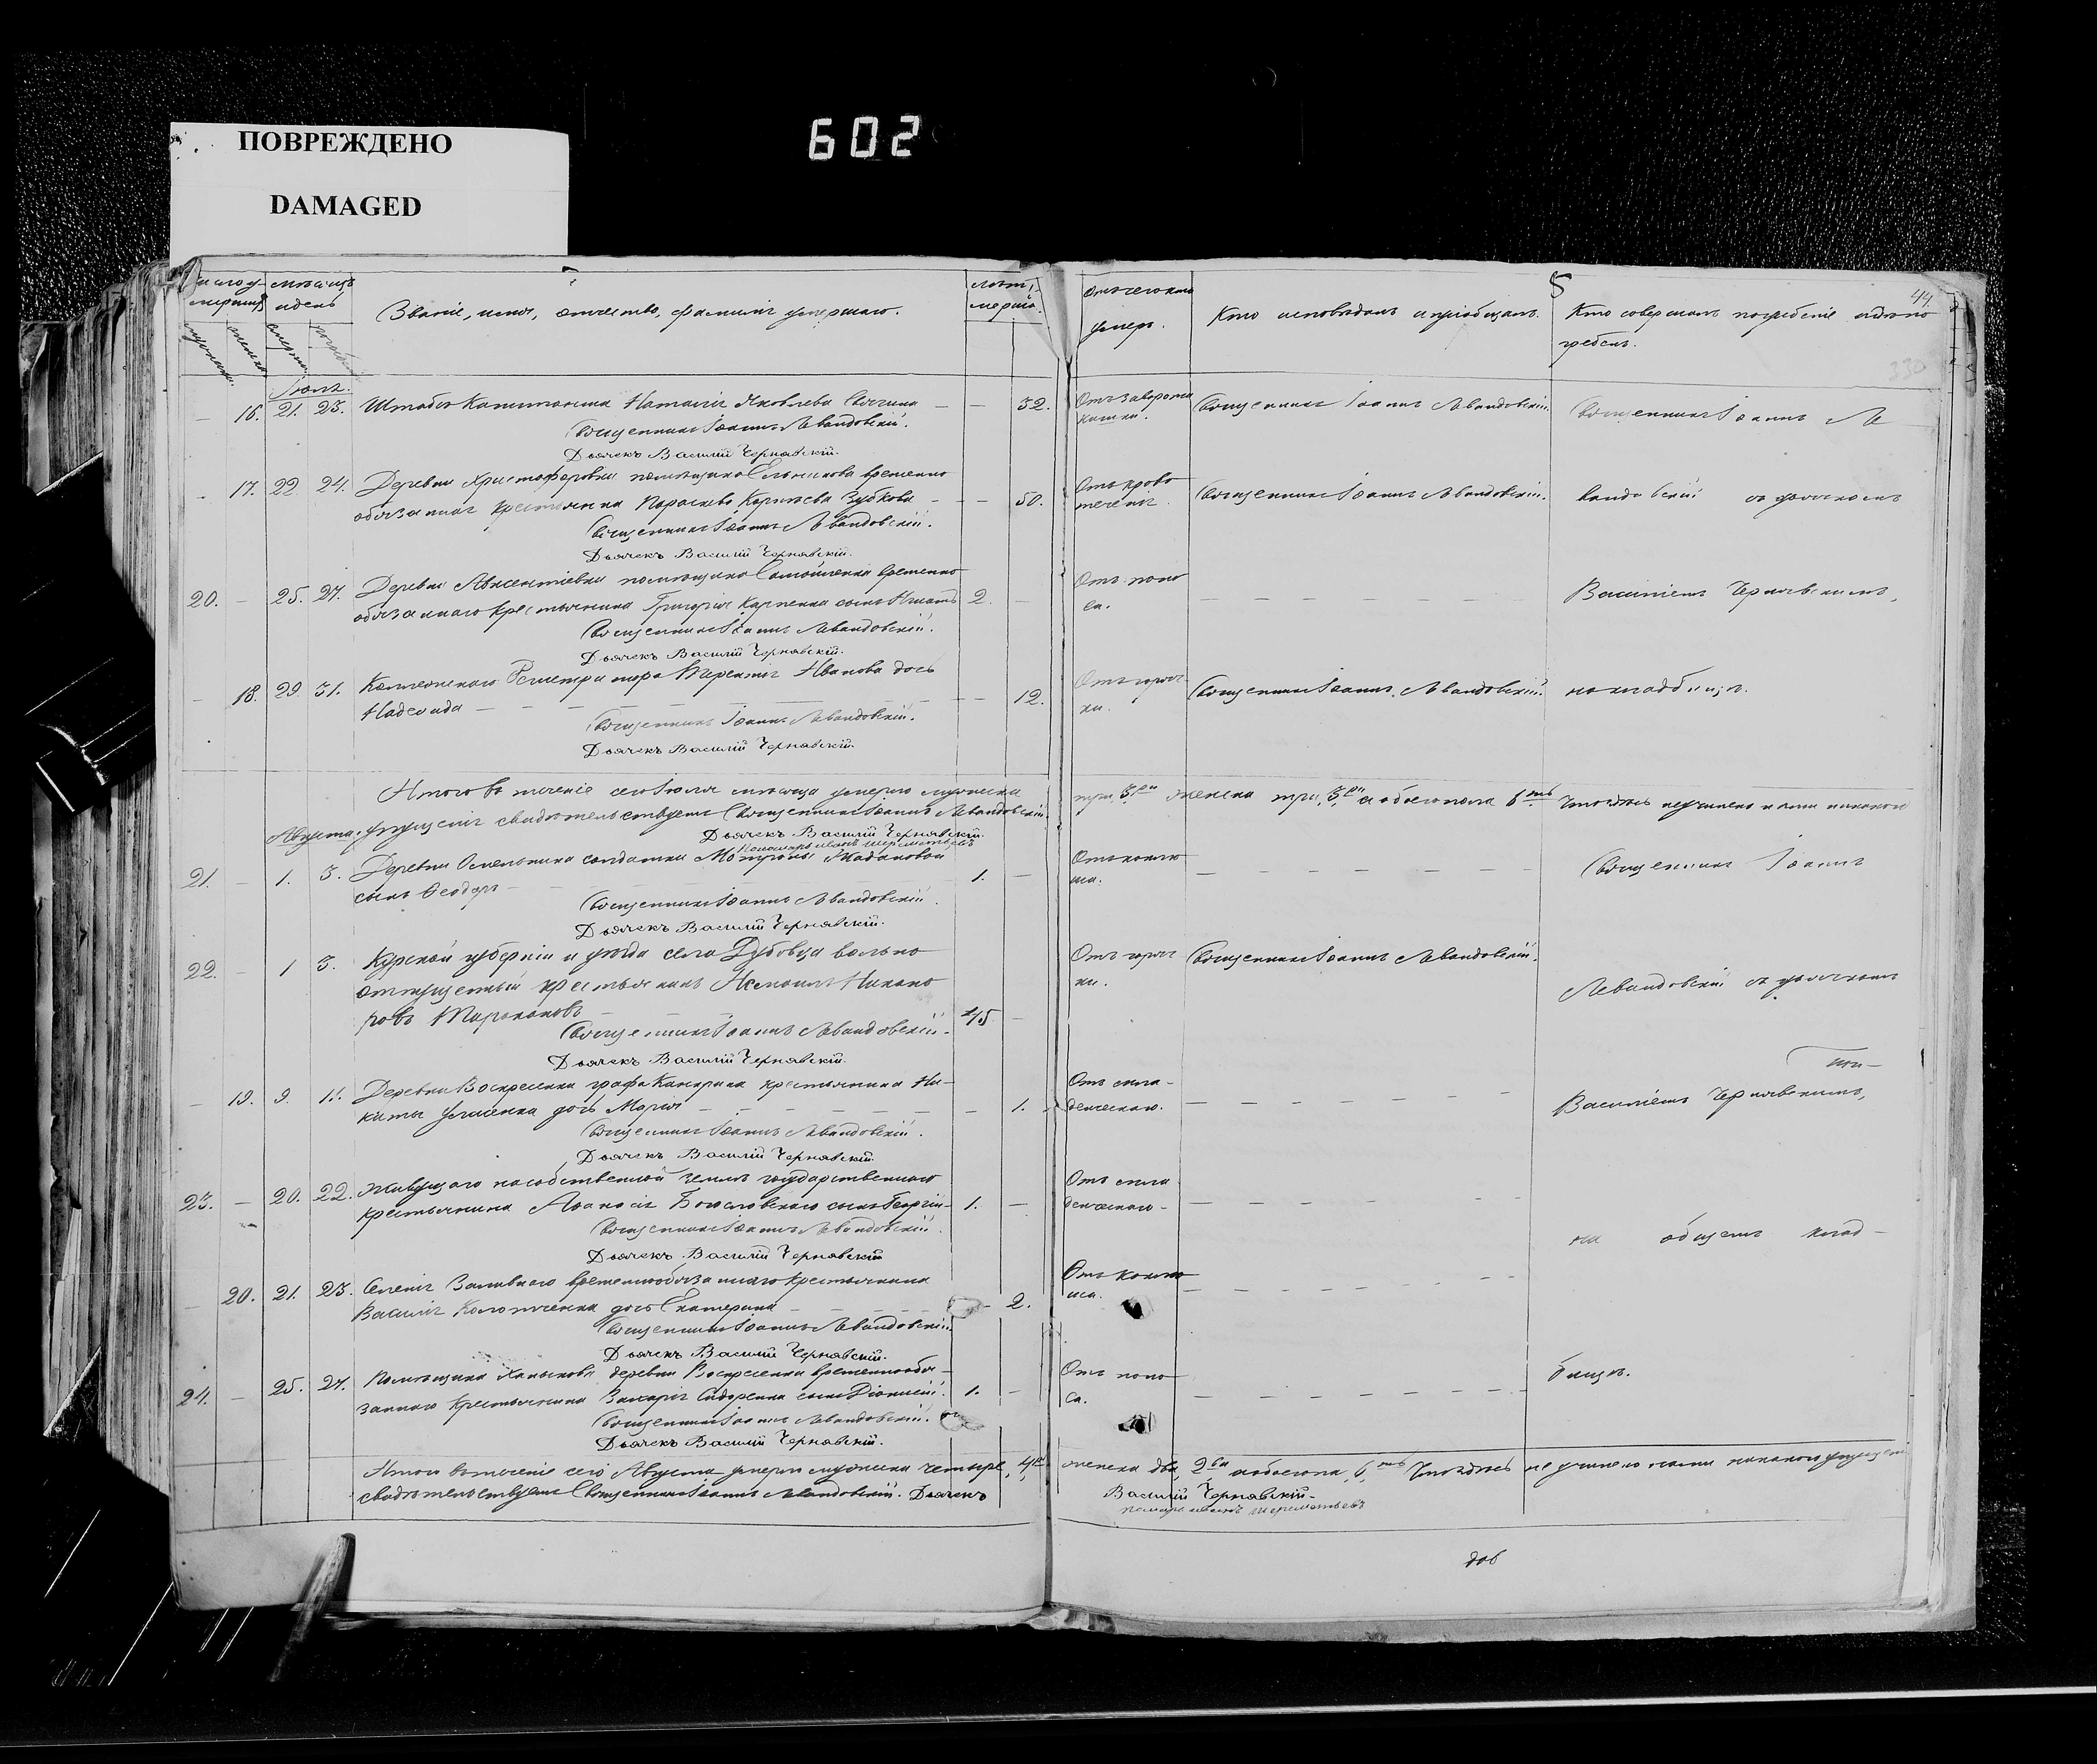 ПОВРЕЖДЕНО
DAMAGED
602
44.
330
месяцъ
и день
Званіе, имя, отчество, фамилія умершаго.
Отъ чего
умеръ.
Кто исповѣдалъ и пріобщалъ.
Кто совершалъ погребеніе и гдѣ по
гребенъ.
Іюль.
16. 21. 23. Штабсъ Капитанша Наталія Яковлева 32. Отъ заворота Священникъ Іоаннъ Левандовскій. Священникъ Іоаннъ Ле
кишки.
Священникъ Іоаннъ Левандовскій.
Дьячекъ Василій Чернявскій.
17. 22 24. Деревни Христофоровки помѣщика временно
обязанная крестьянка Параскева Зубкова 50. Отъ крово Священникъ Іоаннъ Левандовскій. вандовскій съ дьячкомъ
теченія.
Священникъ Іоаннъ Левандовскій.
Дьячекъ Василій Чернявскій.
20. 25. 27. Деревни Авксентіевки помѣщика временно Отъ поно
обязаннаго крестьянина Григорія Карпенка сынъ Игнатъ 2. са. Василіемъ Чернявскимъ,
Священникъ Іоаннъ Левандовскій.
Дьячекъ Василій Чернявскій.
18. 29 31. Коллежскаго Регистратора Терентія Иванова дочь 12. Отъ горяч Священникъ Іоаннъ Левандовскій. на кладбищѣ.
Надежда ки.
Священникъ Іоаннъ Левандовскій.
Дьячекъ Василій Чернявскій.
Итого въ теченіе сего Іюля мѣсяца умерло мужеска три, 3 женска три, 3 а обоего пола 6 Что здѣсь неучинено нами никакого
Августа. упущенія свидѣтельствуемъ Священникъ Іоаннъ Левандовскій.
Дьячекъ Василій Чернявскій.
Пономарь Иванъ Шереметьевъ
21. 1. 3. Деревни Омельника солдатки Мотроны Жадановой 1. Отъ коклю Священникъ Іоаннъ
сынъ Ѳеодоръ ша.
Священникъ Іоаннъ Левандовскій.
Дьячекъ Василій Чернявскій.
22. 1 3. Курской губерніи и уѣзда села Дубовца вольно Отъ горяч Священникъ Іоаннъ Левандовскій.
отпущенный крестьянинъ Никано ки. Левандовскій съ дьячкомъ
ровъ Таракановъ 45
Священникъ Іоаннъ Левандовскій.
Дьячекъ Василій Чернявскій.
19. 9. 11. Деревни Воскресенки графа Канкрина крестьянина Ни- Отъ мла-
киты дочь Марія 1. денческаго. Василіемъ Чернявскимъ,
Священникъ Іоаннъ Левандовскій.
Дьячекъ Василій Чернявскій.
23. 20. 22. Живущаго на собственной землѣ государственнаго Отъ мла
крестьянина Аѳанасія Богословскаго сынъ Георгій 1. денческаго
Священникъ Іоаннъ Левандовскій.
Дьячекъ Василій Чернявскій
на общемъ клад-
20. 21. 23. Селенія Заливнаго временнообязаннаго крестьянина Отъ коклю
Василія дочь Екатерина 2. ша.
Священникъ Іоаннъ Левандовскій.
Дьячекъ Василій Чернявскій.
24. 25. 27. Помѣщика деревни Воскресенки временнообя- Отъ поно бищѣ.
заннаго крестьянина Захарія Сидоренка сынъ Діонисій. 1. са.
Священникъ Іоаннъ Левандовскій.
Дьячекъ Василій Чернявскій.
Итого въ теченіе сего Августа умерло мужеска четыре, 4 женска два, 2 а обоего пола 6, Что здѣсь не учинено нами никакого упущенія
свидѣтельствуемъ Священникъ Іоаннъ Левандовскій. Дьячекъ Василій Чернявскій.
Пономарь Иванъ Шереметьевъ